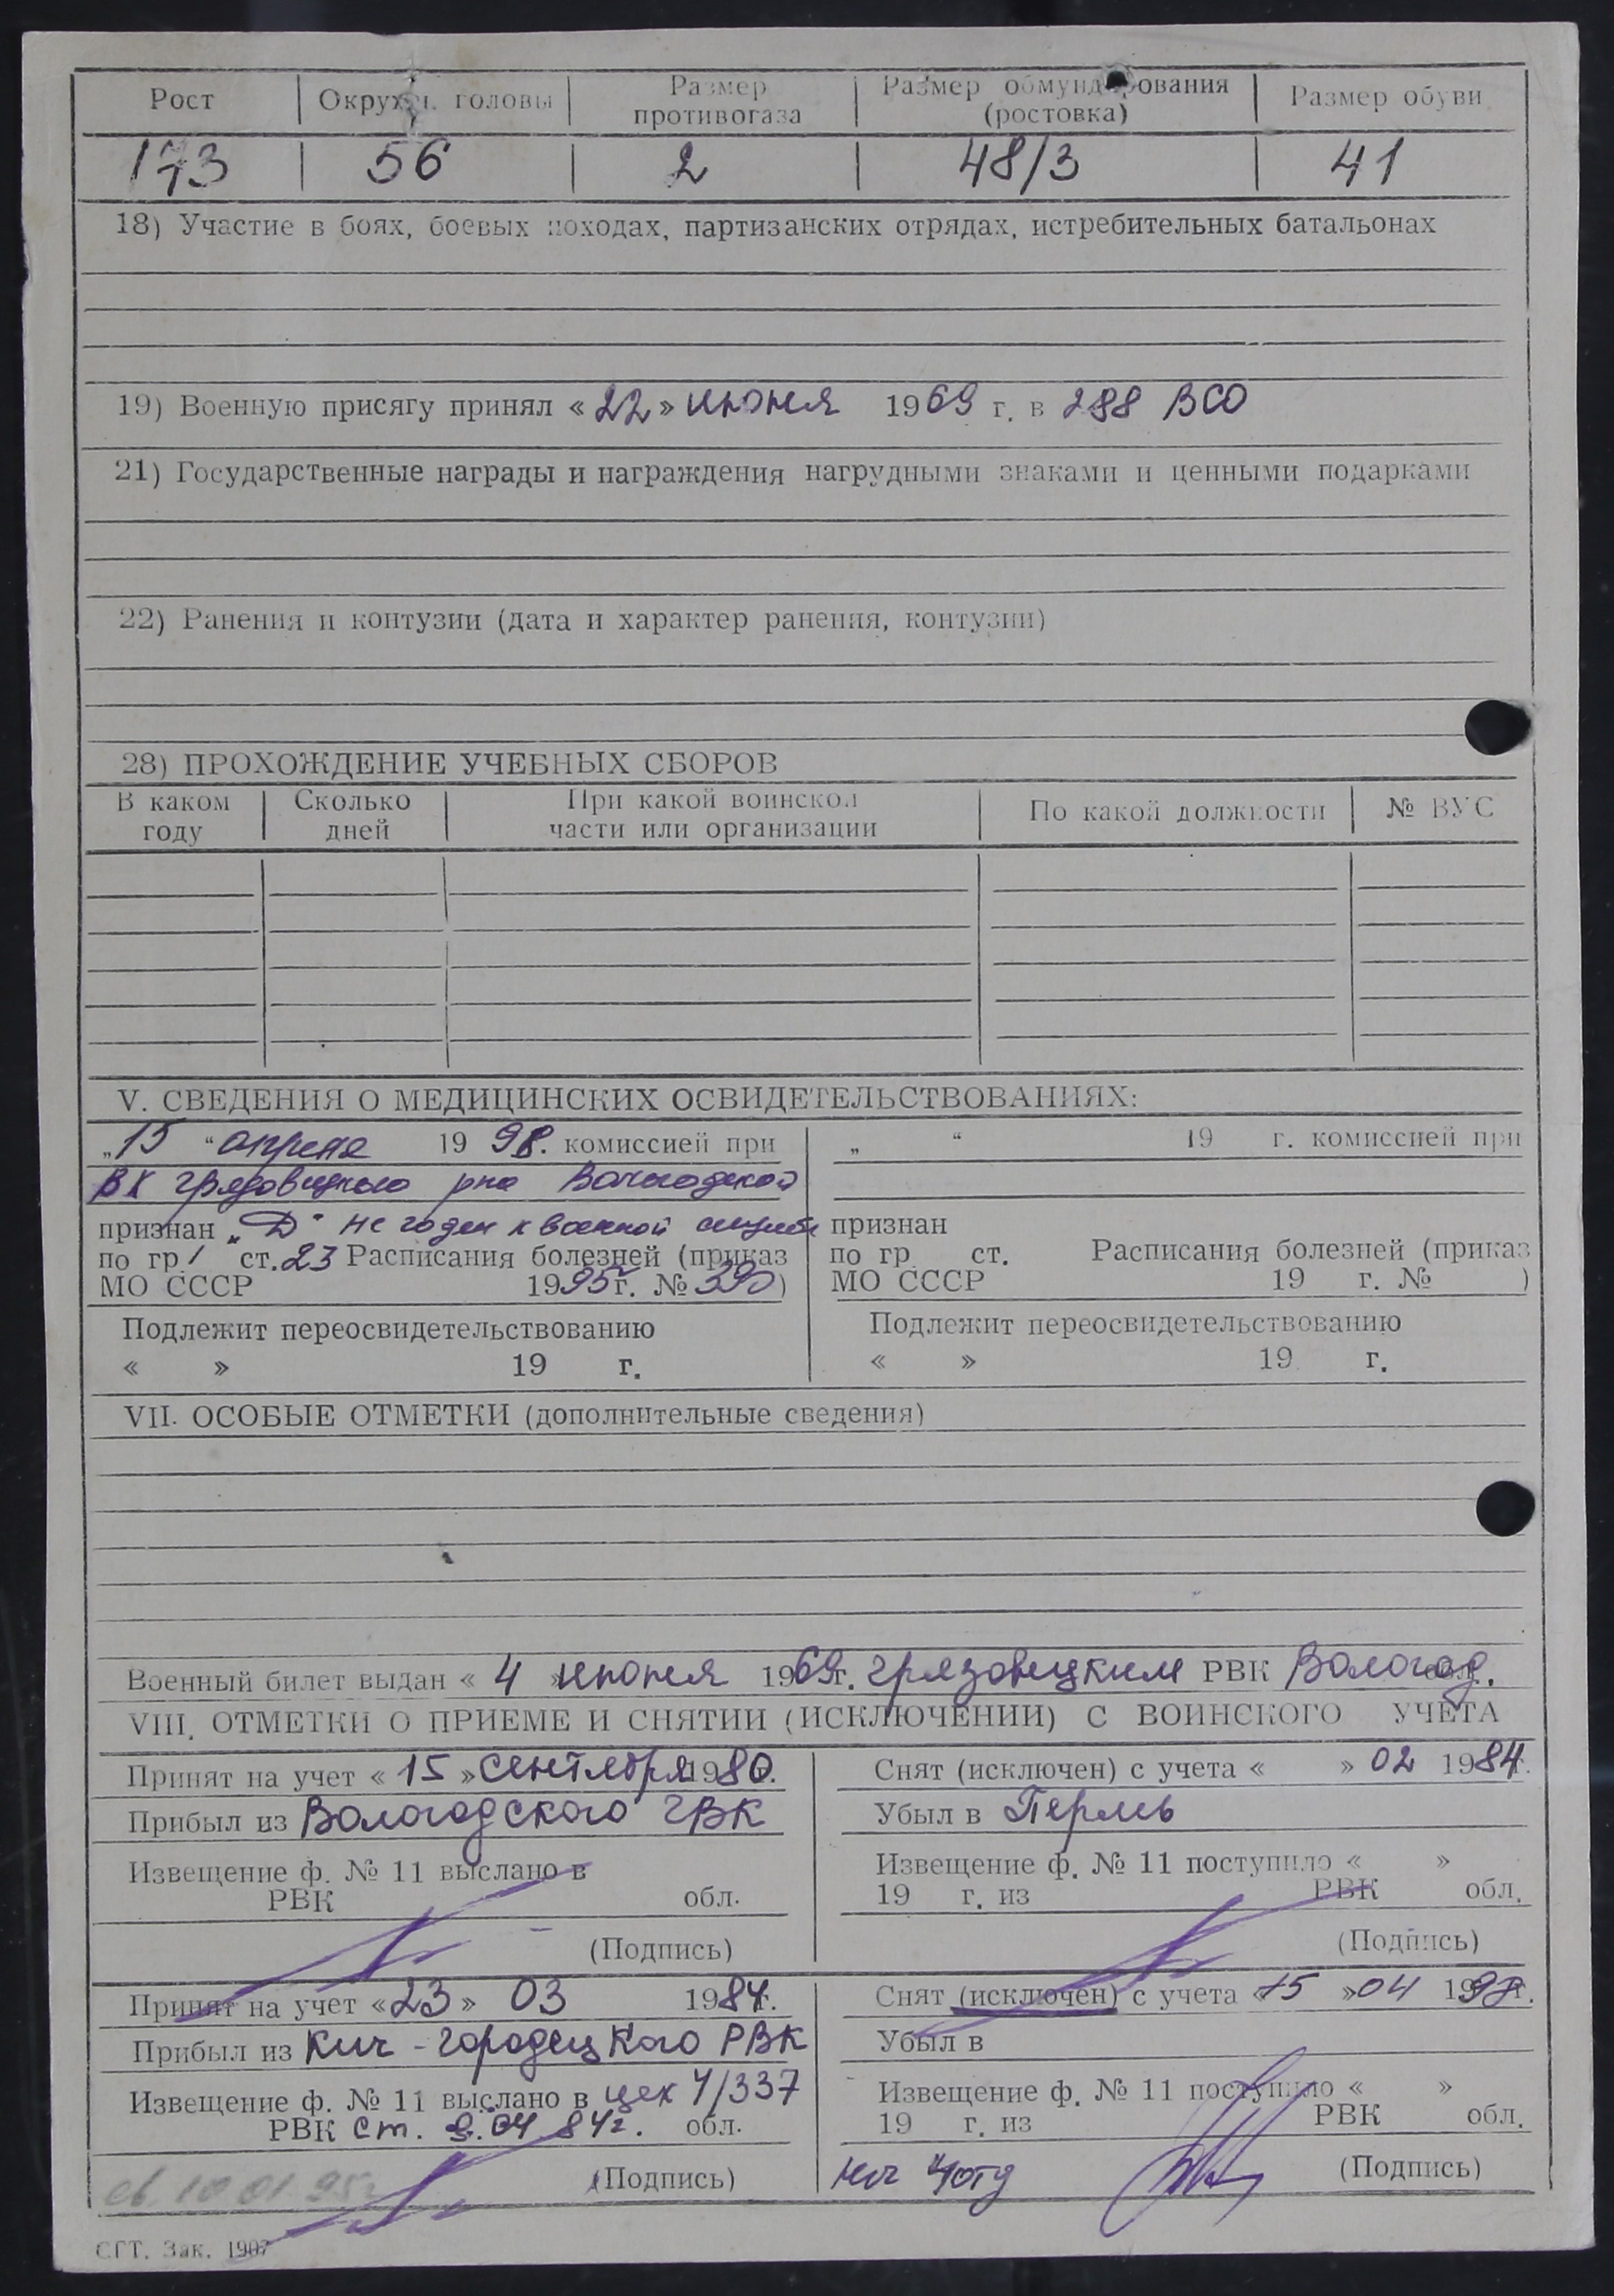 Рост Окружн. головы Размер противогаза Размер обмундирования (ростовка) Размер обуви
173 56 2 48/3 41
18) Участие в боях, боевых походах, партизанских отрядах, истребительных батальонах
19) Военную присягу принял « 22 » июня 1969 г. в 288 ВСО
21) Государственные награды и награждения нагрудными знаками и ценными подарками
22) Ранения и контузии (дата и характер ранения, контузии)
28) ПРОХОЖДЕНИЕ УЧЕБНЫХ СБОРОВ
В каком году Сколько дней При какой воинской части или организации По какой должности № ВУС
V. СВЕДЕНИЯ О МЕДИЦИНСКИХ ОСВИДЕТЕЛЬСТВОВАНИЯХ:
„15 “ апреля 19 98. комиссией при
ВК Грязовецкого р-на Вологодской
признан „Д“ не годен к военной службе
по гр 1 ст. 23 Расписания болезней (приказ
МО СССР 1995 г. № 390)
Подлежит переосвидетельствованию
« » 19 г.
„ “ 19 г. комиссией при
признан
по гр ст. Расписания болезней (приказ
МО СССР 19 г. № )
Подлежит переосвидетельствованию
« » 19 г.
VII. ОСОБЫЕ ОТМЕТКИ (дополнительные сведения)
Военный билет выдан « 4 » июня 1969 г. Грязовецким РВК Вологод. обл.
VIII. ОТМЕТКИ О ПРИЕМЕ И СНЯТИИ (ИСКЛЮЧЕНИИ) С ВОИНСКОГО УЧЕТА
Принят на учет « 15 » сентября 1980.
Прибыл из Вологодского ГВК
Извещение ф. № 11 выслано в
РВК обл.
(Подпись)
Снят (исключен) с учета « » 02 1984 г.
Убыл в Пермь
Извещение ф. № 11 поступило « »
19 г. из РВК обл.
(Подпись)
Принят на учет « 23 » 03 1984 г.
Прибыл из Кич-Городецкого РВК
Извещение ф. № 11 выслано в цех 4/337
РВК ст. 04 84 г. обл.
(Подпись)
Снят (исключен) с учета « 15 » 04 1998 г.
Убыл в
Извещение ф. № 11 поступило « »
19 г. из РВК обл.
нач 4 отд (Подпись)
св. 10 01 95 г
СГТ. Зак. 1907